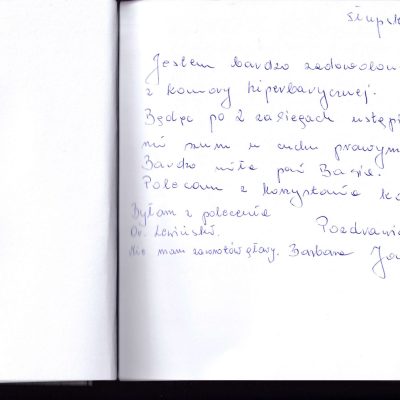 Słupsk
Jestem bardzo zadowolon
z komory hiperbarycznej.
Będąc po 2 zabiegach ustąpi
mi szum w uchu prawym
Bardzo miła pani Basia.
Polecam z korzystania ko
Byłam z polecenia Pozdrawia
Dr. Lewiński.
Nie mam zawrotów głowy. Barbara